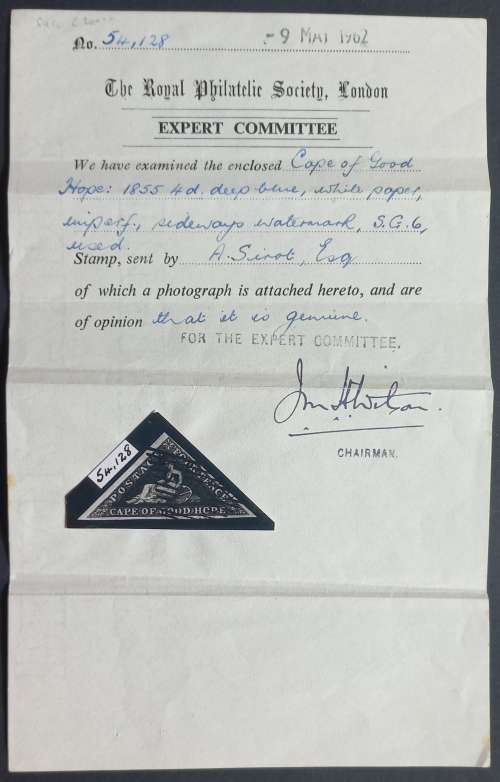 No. 54,128 -9 MAY 1962
The Royal Philatelic Society, London
EXPERT COMMITTEE
We have examined the enclosed Cape of Good
Hope: 1855 4d. deep blue, white paper,
imperf., sideways watermark, S.G.6,
used.
Stamp, sent by A. Sirot, Esq
of which a photograph is attached hereto, and are
of opinion that it is genuine.
FOR THE EXPERT COMMITTEE.
CHAIRMAN.
54,128
POSTAGE
FOUR PENCE
CAPE OF GOOD HOPE